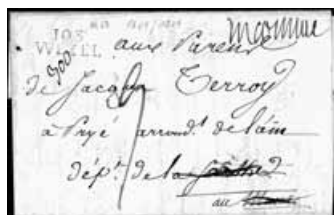 103
WEZEL
300
inconnue
aux Parens
de Jacques Terroy
à Pryé arrond.t de l'ain
dép.t de la
au